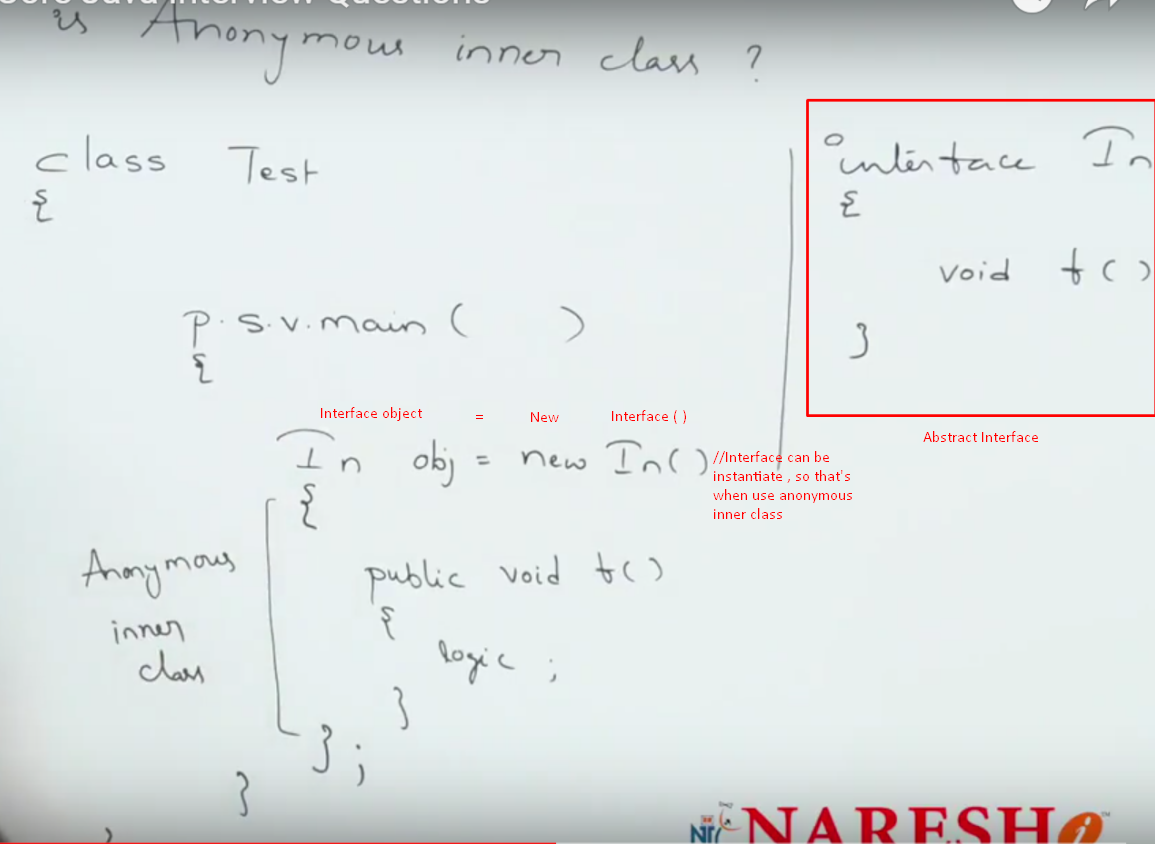 Core Java Interview Questions
is Anonymous inner class ?
class Test
{
p.s.v.main( )
{
Interface object = New Interface ( )
In obj = new In()
//Interface can be
instantiate , so that's
when use anonymous
inner class
{
Anonymous
inner
class
public void f()
{
logic ;
}
};
}
interface In
{
void f()
}
Abstract Interface
NARESH i